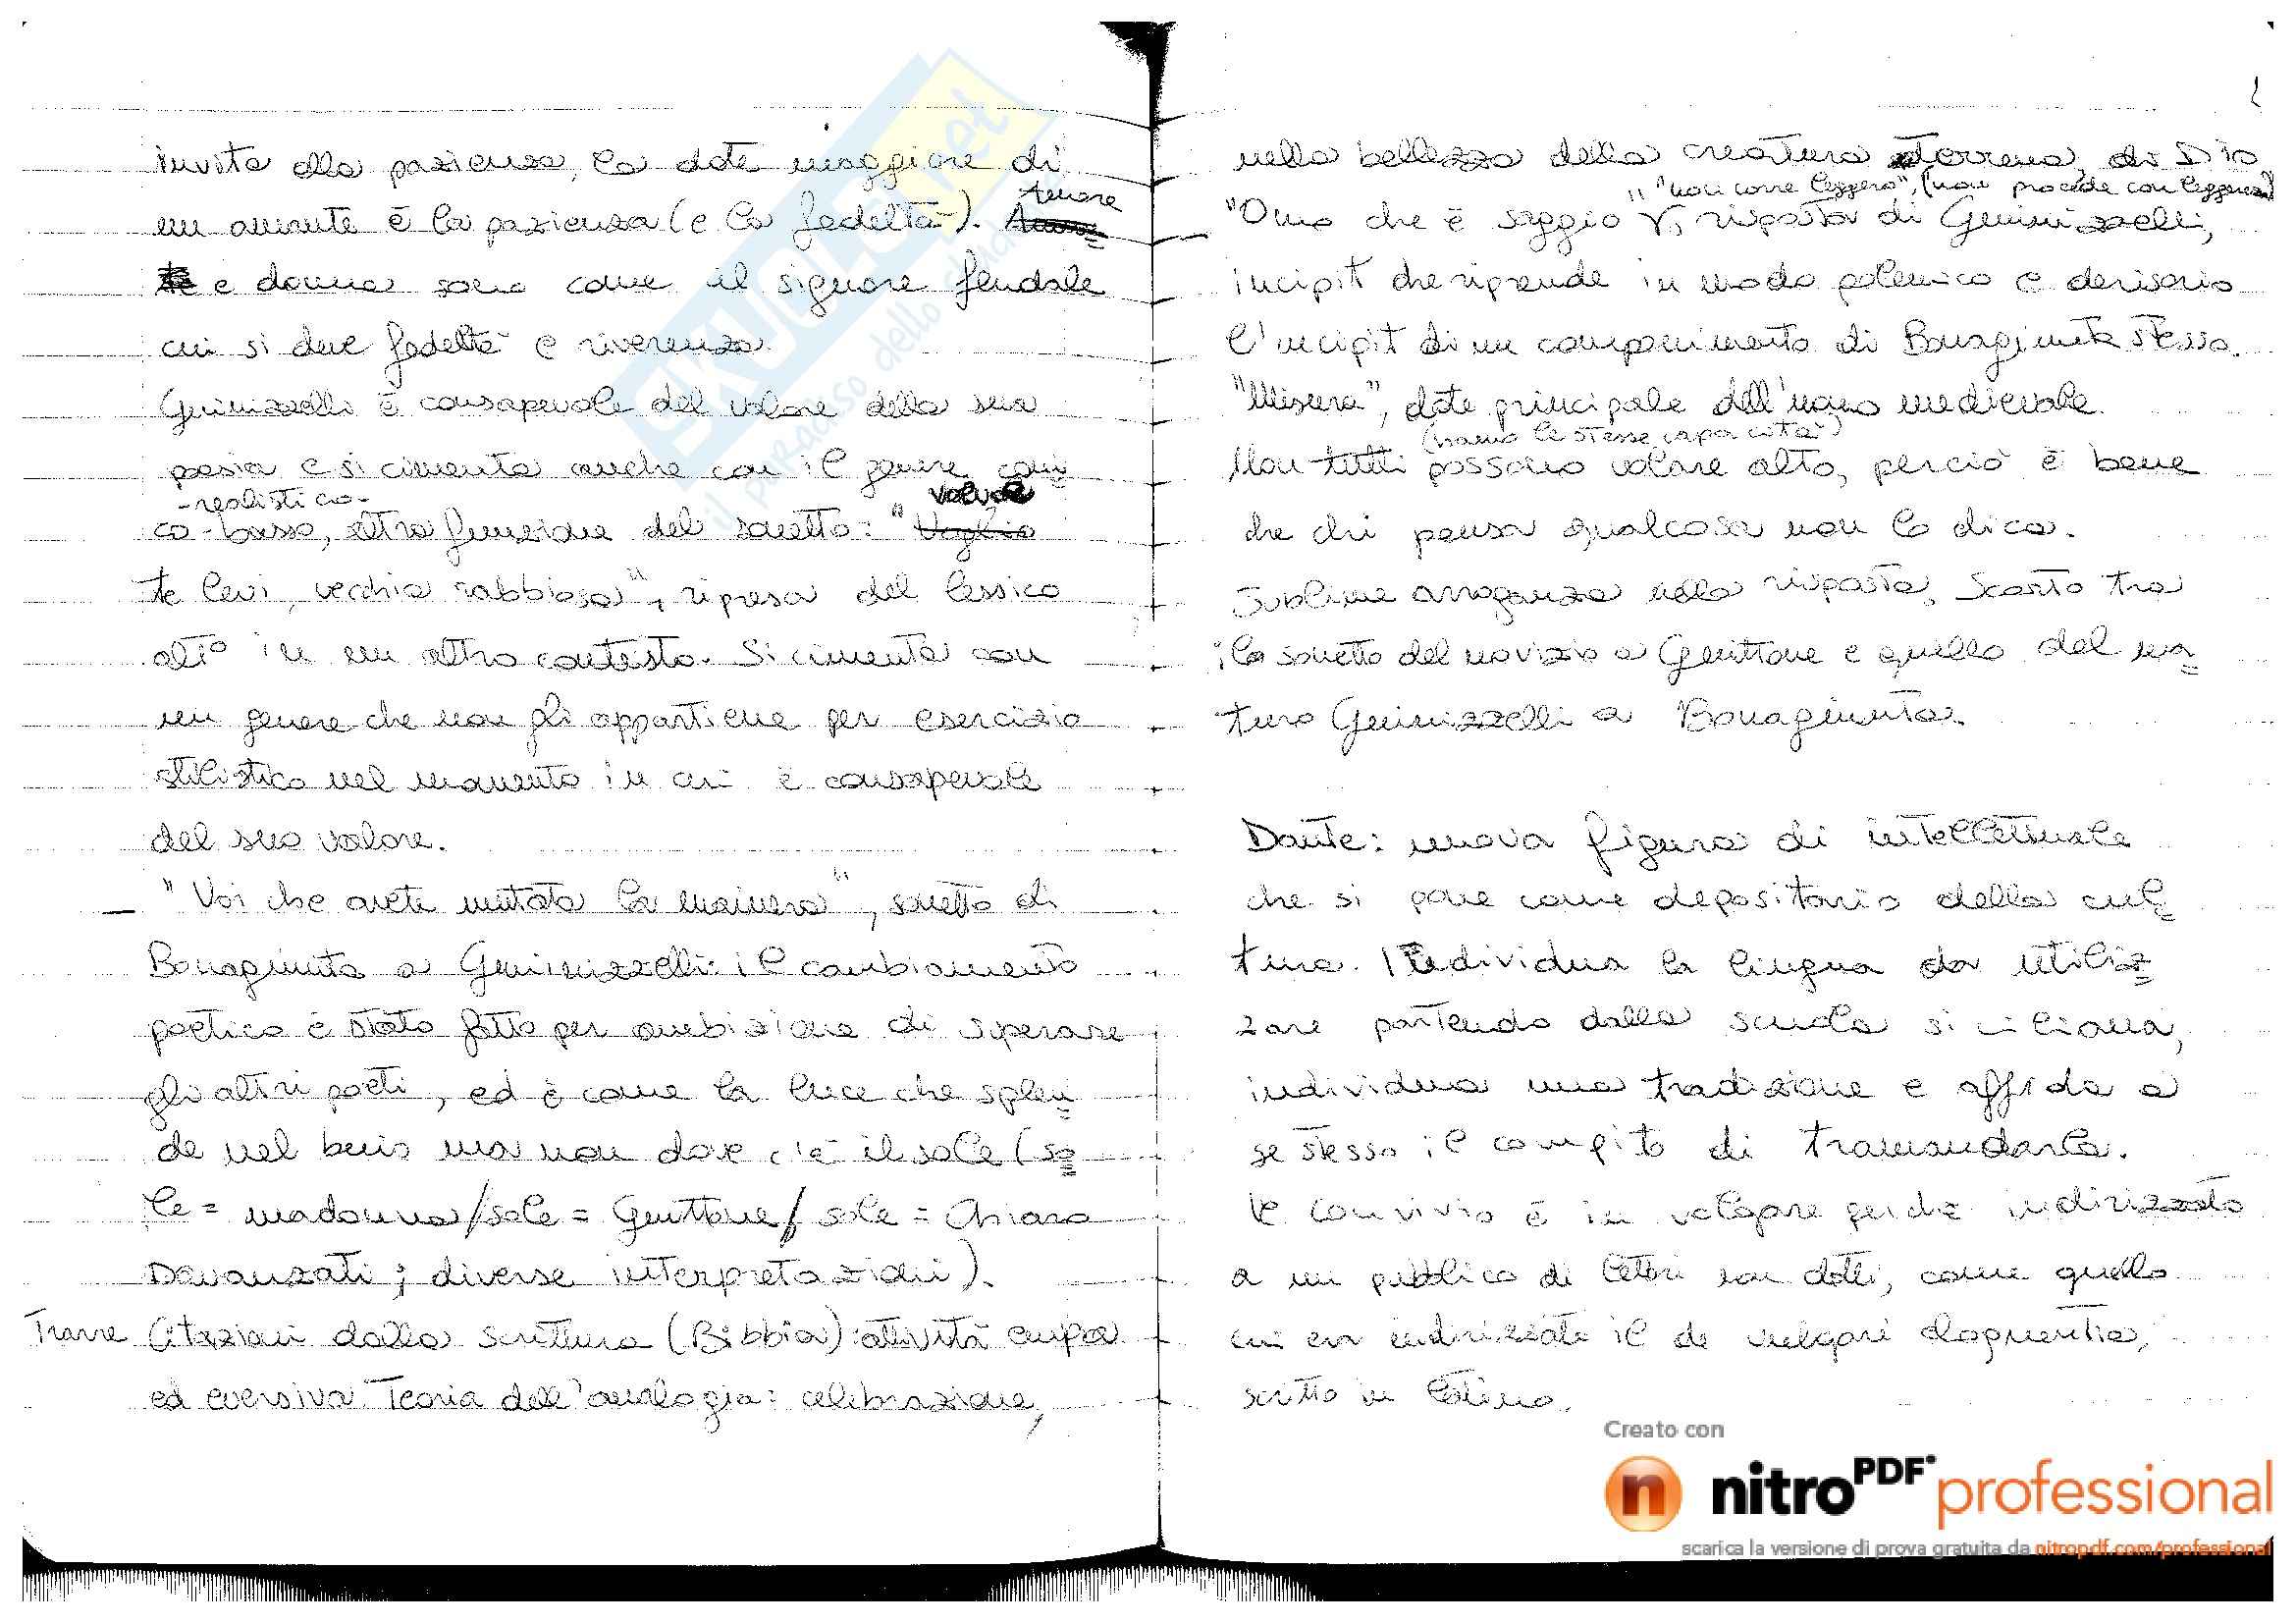 invita alla pazienza, la dote maggiore di
un amante è la pazienza (e la fedeltà). Amore
e donna sono come il signore feudale
cui si deve fedeltà e riverenza.
Guinizzelli è consapevole del valore della sua
poesia e si cimenta anche con il genere comi=
-realistico-
co-basso, altra funzione del sonetto: "Volvol
te levi, vecchia rabbiosa", ripresa del lessico
alto in un altro contesto. Si cimenta con
un genere che non gli appartiene per esercizio
stilistico nel momento in cui è consapevole
del suo valore.
— "Voi che avete mutata la mainera", sonetto di
Bonagiunta a Guinizzelli: il cambiamento
poetico è stato fatto per ambizione di superare
gli altri poeti, ed è come la luce che splen=
de nel buio ma non dove c'è il sole (so=
le = madonna/sole = Guittone/sole = Chiaro
Davanzati; diverse interpretazioni).
Trarre Citazioni dalla scrittura (Bibbia): attività cupa
ed eversiva. Teoria dell'analogia: celebrazione,
nella bellezza della creatura terrena, di Dio
"non corre leggero", (non procede con leggerezza)
"Omo che è saggio", risposta di Guinizzelli,
incipit che riprende in modo polemico e derisorio
l'incipit di un componimento di Bonagiunta stesso.
"Misura", dote principale dell'uomo medievale.
(hanno le stesse capacità)
Non tutti possono volare alto, perciò è bene
che chi pensa qualcosa non lo dica.
Sublime arroganza nella risposta. Scarto tra
il sonetto del novizio a Guittone e quello del ma=
turo Guinizzelli a Bonagiunta.
Dante: nuova figura di intellettuale
che si pone come depositario della cul=
tura. Individua la lingua da utiliz=
zare partendo dalla scuola siciliana,
individua una tradizione e affida a
se stesso il compito di tramandarla.
Il convivio è in volgare perché indirizzato
a un pubblico di lettori non dotti, come quello
cui era indirizzato il de vulgari eloquentia,
scritto in latino.
SKUOLA.net
il paradiso dello studente
Creato con
nitroPDF professional
scarica la versione di prova gratuita da nitropdf.com/professional